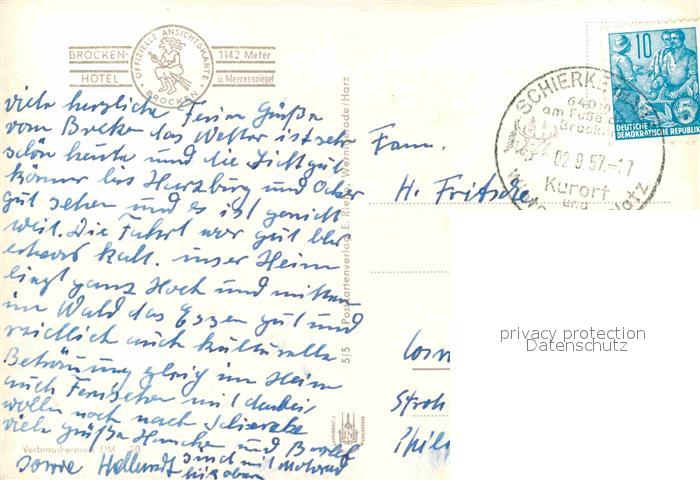 BROCKEN-
HOTEL
OFFIZIELLE ANSICHTSKARTE
BROCKEN
1142 Meter
ü. Meeresspiegel
viele herzliche Ferien Grüße
vom Brocken das Wetter ist sehr
schön heute und die Sicht gut
können bis Harzburg und Oker
gut sehen und es ist gar nicht
weit. Die Fahrt war gut bloß
etwas kalt. unser Heim
liegt ganz Hoch und mitten
im Wald das Essen gut und
reichlich auch kulturelle
Betreuung gleich im Heim
auch Fernsehen mit dabei,
wollen noch nach Schierke
viele Grüße und
sowie sind mit Motorrad
hier oben
Verbraucherpreis DM -,20
5/5 Postkartenverlag E. Wernigerode/Harz
Fam.
H. Fritsche
Stroh
SCHIERKE
640 m
am Fuße
Brocken
02.9.57.-17
Kurort
und
platz
10
5
DEUTSCHE
DEMOKRATISCHE REPUBLIK
privacy protection
Datenschutz